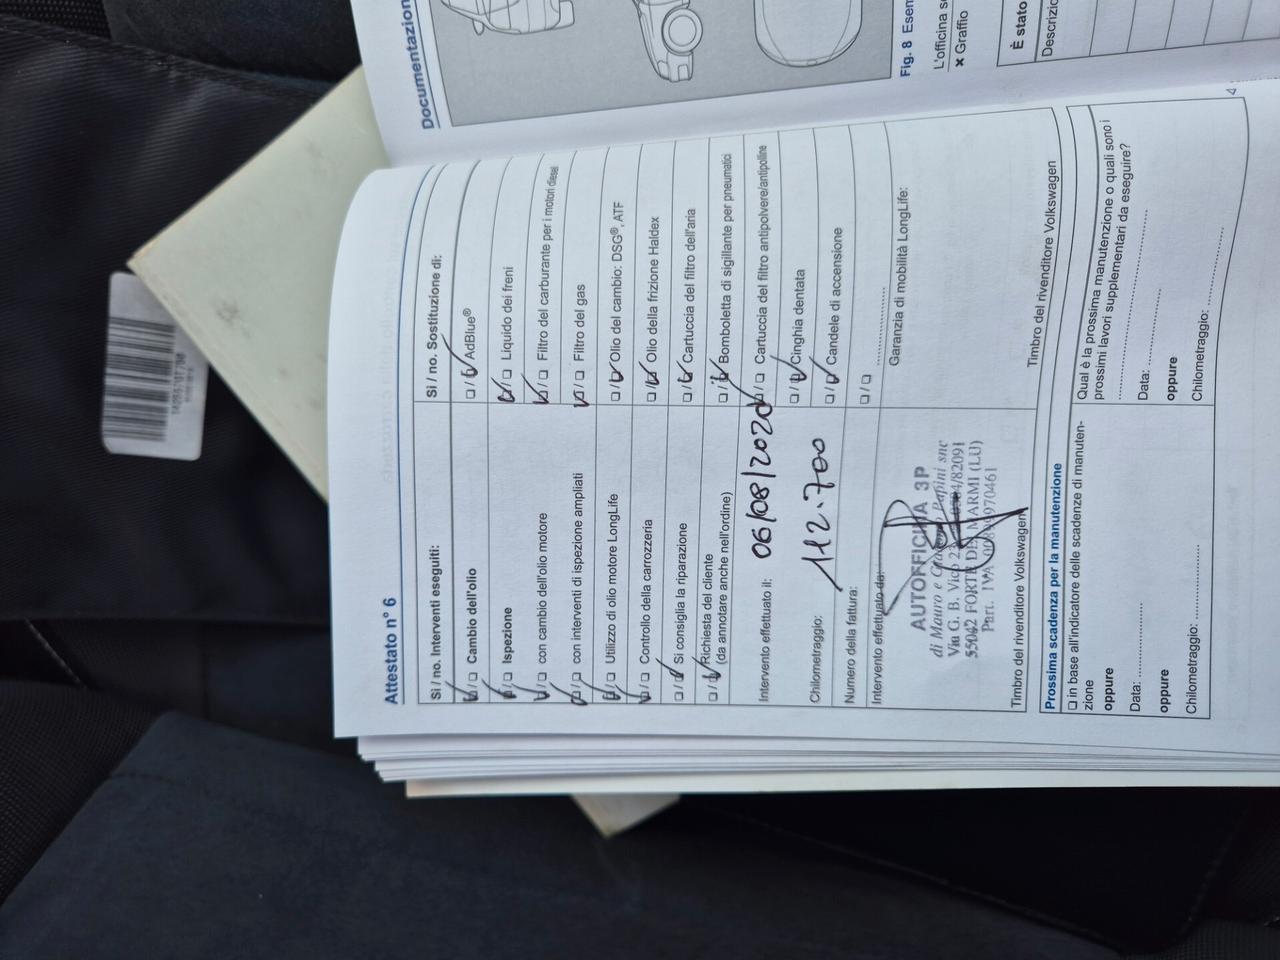 Attestato n° 6
Si / no. Interventi eseguiti:
☑/☐ Cambio dell'olio
☑/☐ Ispezione
☑/☐ con cambio dell'olio motore
☑/☐ con interventi di ispezione ampliati
☑/☐ Utilizzo di olio motore LongLife
☑/☐ Controllo della carrozzeria
☐/☑ Si consiglia la riparazione
☐/☑ Richiesta del cliente
(da annotare anche nell'ordine)
Intervento effettuato il: 06/08/2020
Chilometraggio: 112.700
Numero della fattura:
Intervento effettuato da:
AUTOFFICINA 3P
di Mauro e Papini snc
Via G. B. Vico
55042 FORTE DEI MARMI (LU)
Part. IVA
Timbro del rivenditore Volkswagen
Si / no. Sostituzione di:
☐/☑ AdBlue®
☑/☐ Liquido dei freni
☑/☐ Filtro del carburante per i motori diesel
☑/☐ Filtro del gas
☐/☑ Olio del cambio: DSG®, ATF
☐/☑ Olio della frizione Haldex
☐/☑ Cartuccia del filtro dell'aria
☐/☑ Bomboletta di sigillante per pneumatici
☑/☐ Cartuccia del filtro antipolvere/antipolline
☐/☑ Cinghia dentata
☐/☑ Candele di accensione
☐/☐
Garanzia di mobilità LongLife:
Timbro del rivenditore Volkswagen
Prossima scadenza per la manutenzione
☐ in base all'indicatore delle scadenze di manuten-
zione
oppure
Data:
oppure
Chilometraggio:
Qual è la prossima manutenzione o quali sono i
prossimi lavori supplementari da eseguire?
Data:
oppure
Chilometraggio:
Documentazion
Fig. 8 Esem
L'officina se
× Graffio
È stato
Descrizio
4